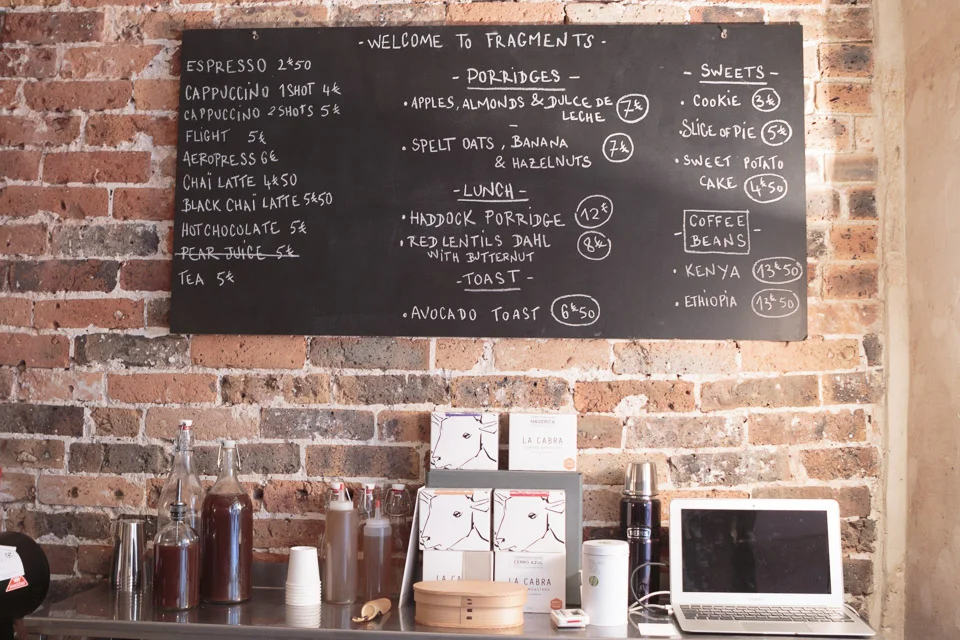 -WELCOME TO FRAGMENTS-
ESPRESSO 2€50
CAPPUCCINO 1SHOT 4€
CAPPUCCINO 2SHOTS 5€
FLIGHT 5€
AEROPRESS 6€
CHAÏ LATTE 4€50
BLACK CHAÏ LATTE 5€50
HOT CHOCOLATE 5€
PEAR JUICE 5€
TEA 5€
- PORRIDGES -
• APPLES, ALMONDS & DULCE DE
LECHE 7€
• SPELT OATS, BANANA
& HAZELNUTS 7€
- LUNCH -
• HADDOCK PORRIDGE 12€
• RED LENTILS DAHL
WITH BUTTERNUT 8€
- TOAST -
• AVOCADO TOAST 6€50
- SWEETS -
• COOKIE 3€
• SLICE OF PIE 5€
• SWEET POTATO
CAKE 4€50
- COFFEE
BEANS -
• KENYA 13€50
• ETHIOPIA 13€50
LA CABRA
LA CABRA